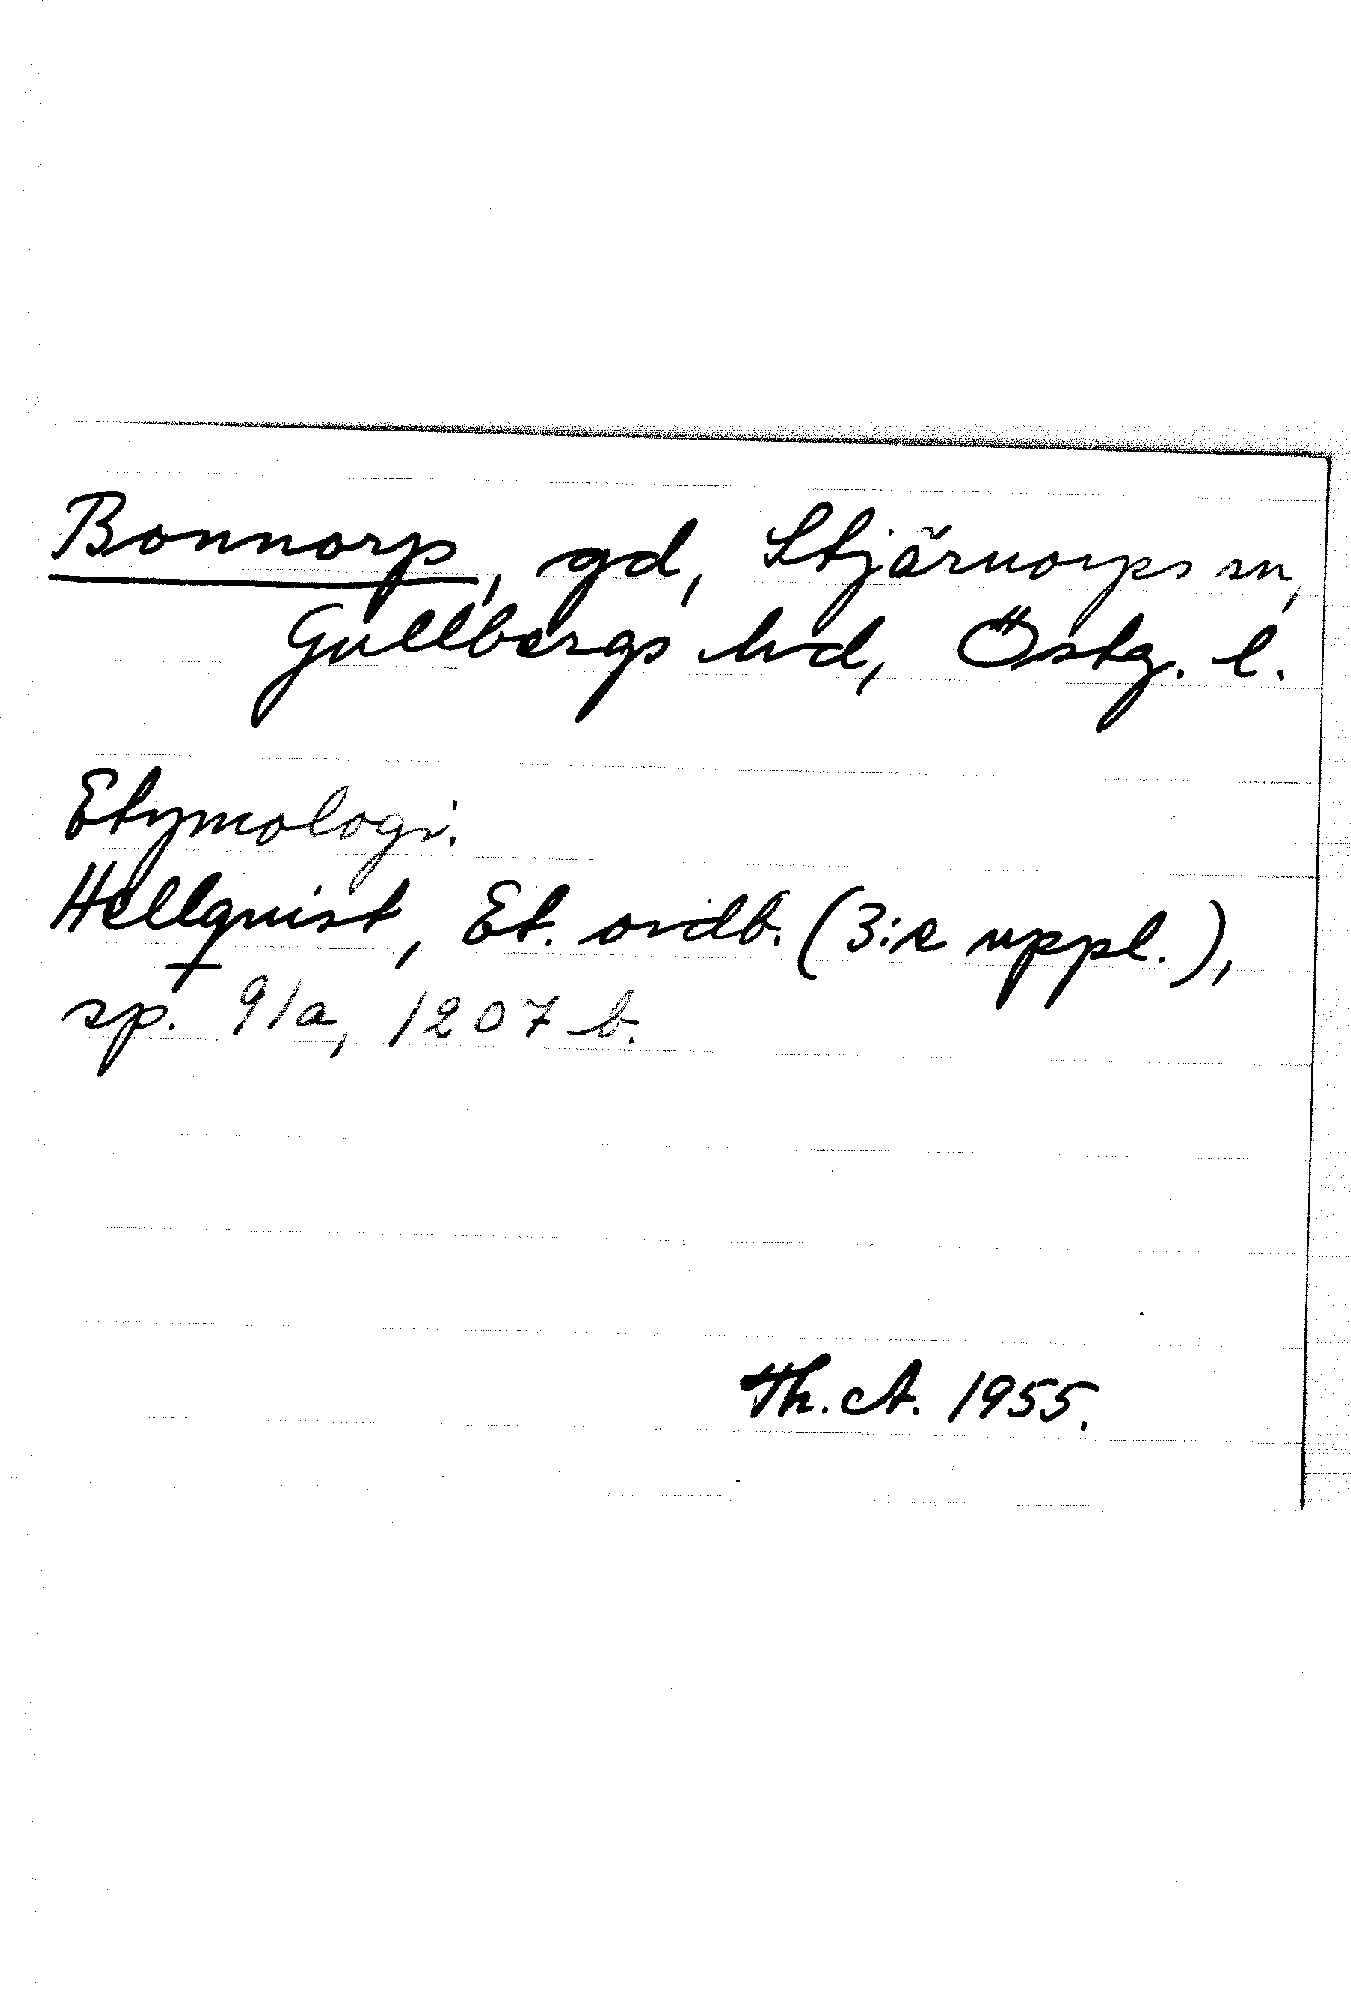 Bonnorp, gd, Stjärnorps sn,
Gullbergs hd, Östg. l.
Etymologi.
Hellquist, Et. ordb. (3:e uppl.),
sp. 91a, 1207 b.
Th. A. 1955.